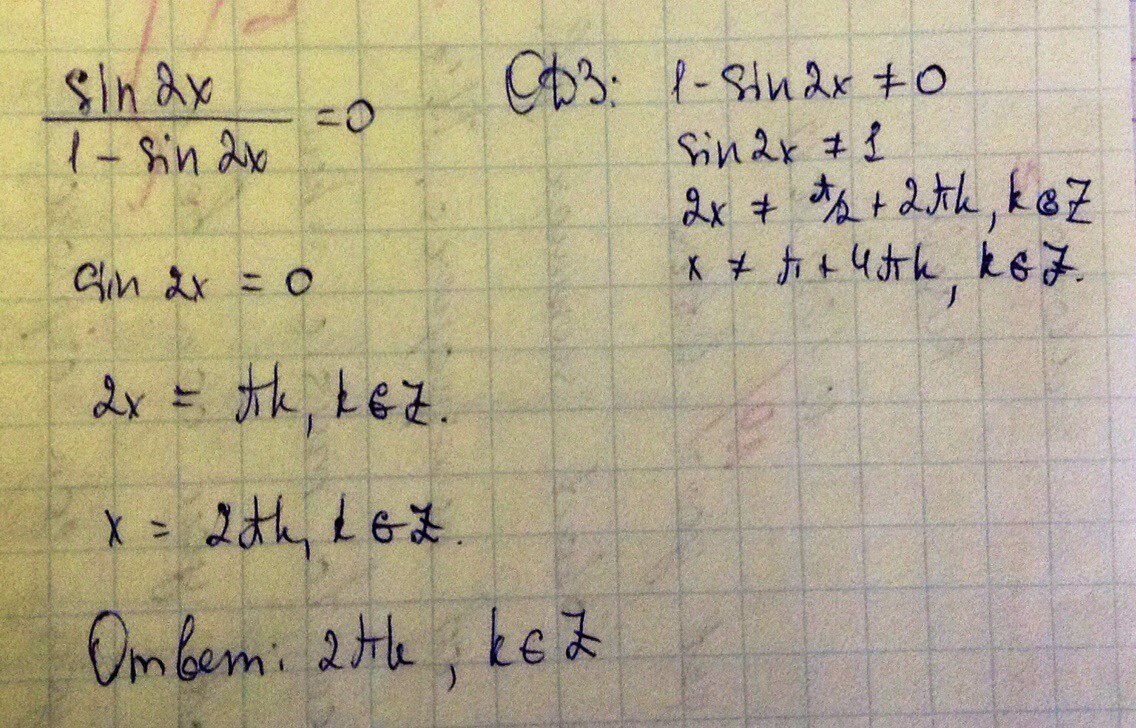 sin 2x / 1 - sin 2x = 0
ОДЗ: 1 - sin 2x ≠ 0
sin 2x ≠ 1
2x ≠ π/2 + 2πk, k ∈ Z
x ≠ π + 4πk, k ∈ Z.
sin 2x = 0
2x = πk, k ∈ Z.
x = 2πk, k ∈ Z.
Ответ: 2πk, k ∈ Z